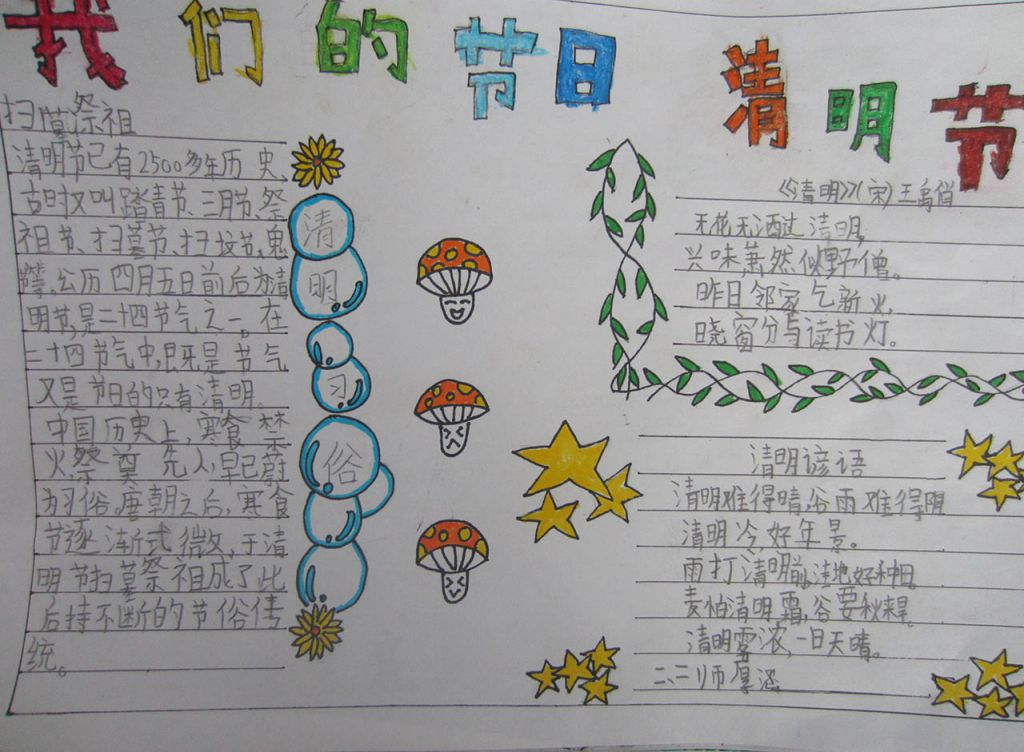 我们的节日 清明节
扫墓祭祖
清明节已有2500多年历史,
古时又叫踏青节、三月节、祭
祖节、扫墓节、扫坟节、鬼
节。公历四月五日前后为清
明节,是二十四节气之一。在
二十四节气中,既是节气
又是节日的只有清明。
中国历史上,寒食禁
火祭奠先人,早已蔚
为习俗。唐朝之后,寒食
节逐渐式微,于清
明节扫墓祭祖成了此
后持不断的节俗传
统。
清
明
习
俗
《清明》(宋)王禹偁
无花无酒过清明,
兴味萧然似野僧。
昨日邻家乞新火,
晓窗分与读书灯。
清明谚语
清明难得晴,谷雨难得阴
清明冷好年景。
雨打清明前,洼地好种田。
麦怕清明霜,谷要秋来旱。
清明雾浓,一日天晴。
二、二 师厚涵